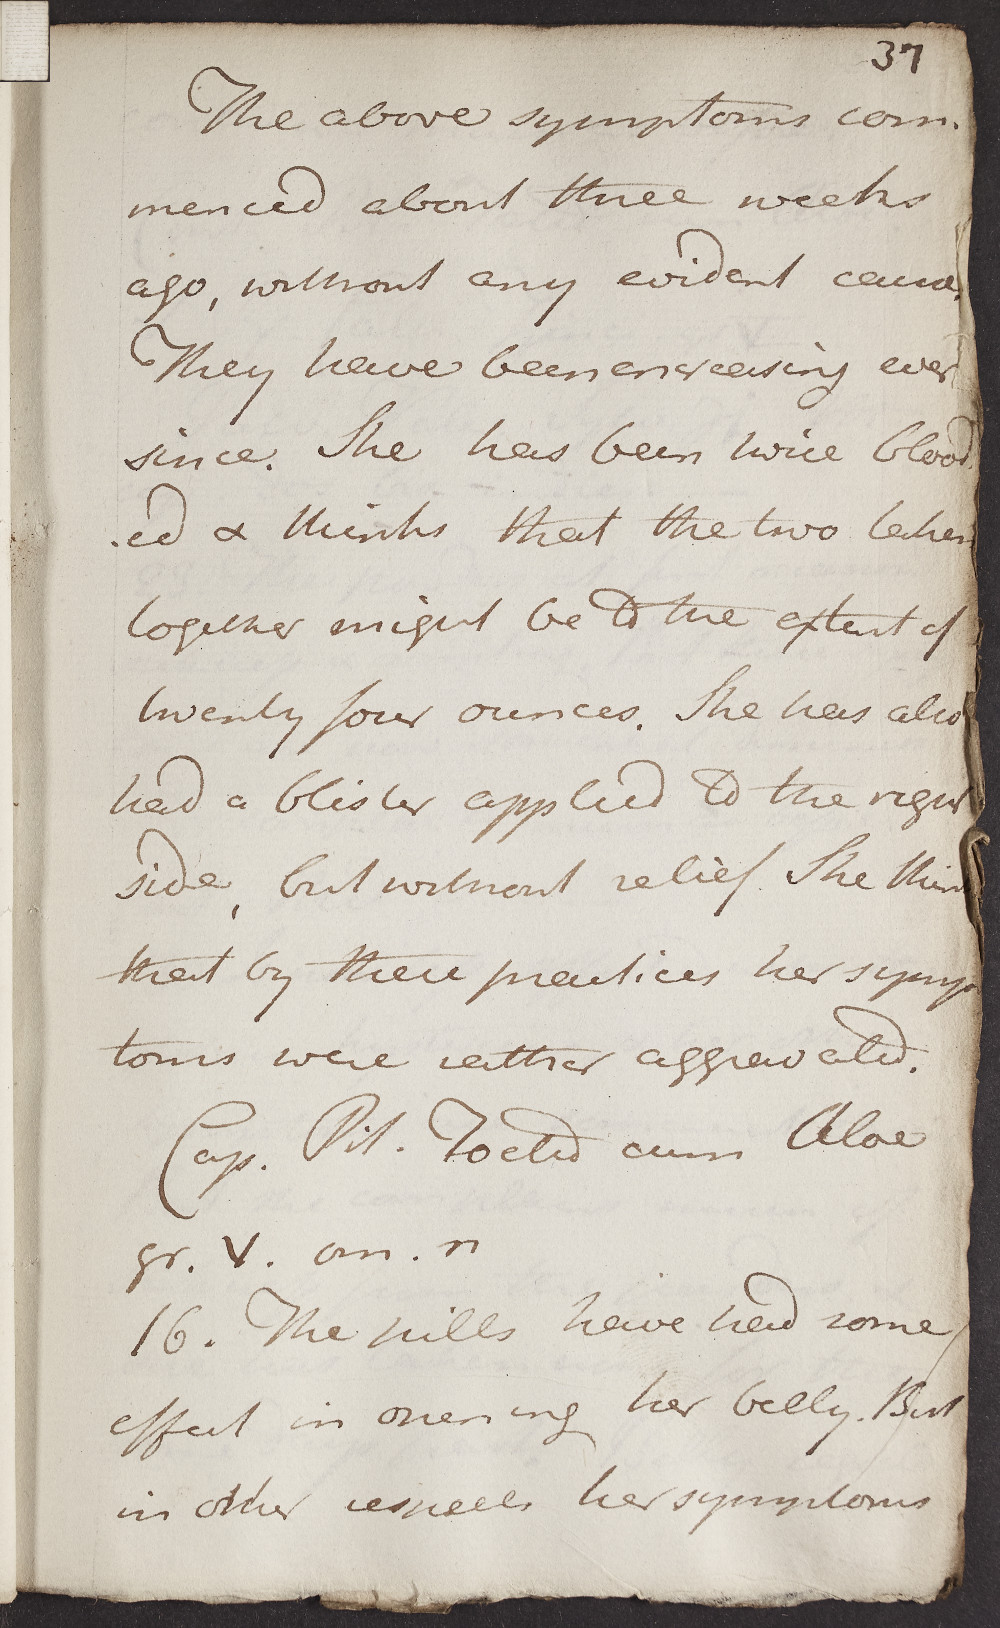 37
The above symptoms com-
menced about three weeks
ago, without any evident cause.
They have been encreasing ever
since. She has been twice blood
.ed & thinks that the two taken
together might be to the extent of
twenty four ounces. She has also
had a blister applied to the right
side, but without relief. She think
that by these practices her symp
toms were rather aggravated.
Cap. Pil. Foetid cum Aloe
gr. V. om. n
16. The pills have had some
effect in opening her belly. But
in other respects her symptoms